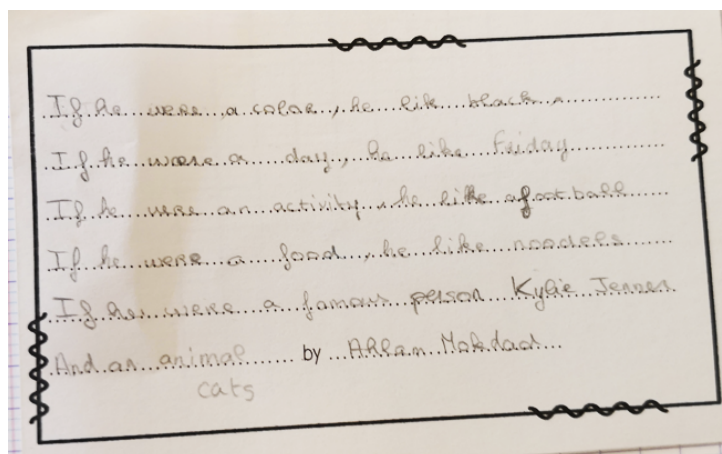 If he were a color, he lik black.
If he were a day, he like Friday
If he were an activity, he like football
If he were a food, he like noodels
If her were a famous person Kylie Jenner
And an animal by Ahlam Mokdad
cats